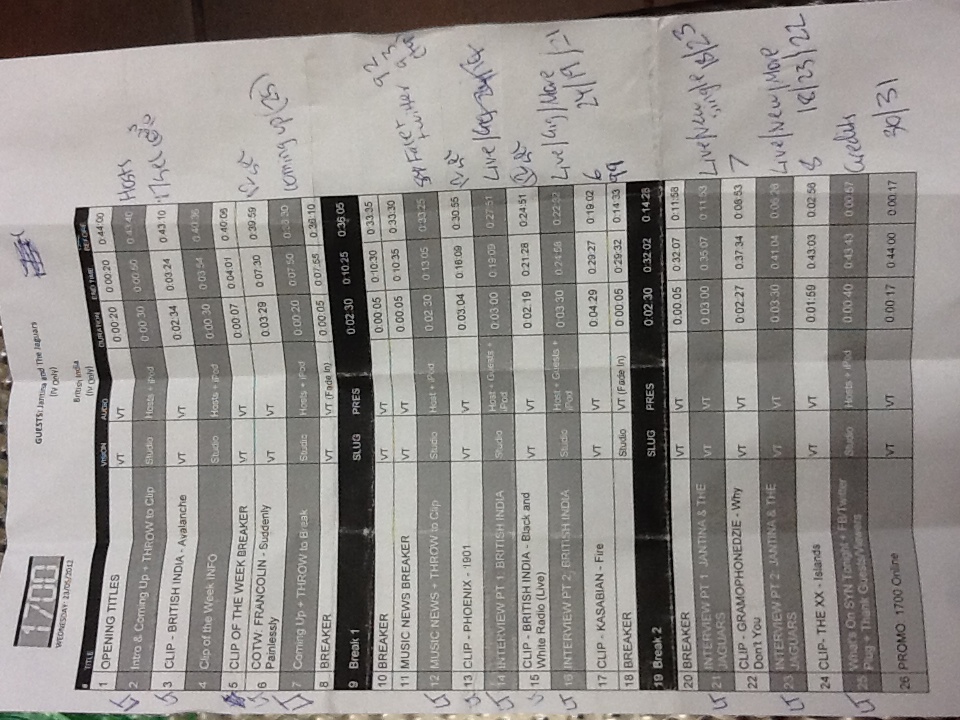 1700
WEDNESDAY: 23/05/2012
GUESTS: Jantina and The Jaguars
(TV Only)
British India
(TV Only)
# TITLE VISION AUDIO DURATION END TIME BEFORE
1 OPENING TITLES VT VT 0:00:20 0:00:20 0:44:00
2 Intro & Coming Up + THROW to Clip Studio Hosts + iPod 0:00:30 0:00:50 0:43:40 Hosts
3 CLIP - BRITISH INDIA - Avalanche VT VT 0:02:34 0:03:24 0:43:10
4 Clip of the Week INFO Studio Hosts + iPod 0:00:30 0:03:54 0:40:36
5 CLIP OF THE WEEK BREAKER VT VT 0:00:07 0:04:01 0:40:06
6 COTW: FRANCOLIN - Suddenly Painlessly VT VT 0:03:29 0:07:30 0:39:59
7 Coming Up + THROW to Break Studio Hosts + iPod 0:00:20 0:07:50 0:36:30 Coming up (25)
8 BREAKER VT VT (Fade In) 0:00:05 0:07:55 0:36:10
9 Break 1 SLUG PRES 0:02:30 0:10:25 0:36:05
10 BREAKER VT VT 0:00:05 0:10:30 0:33:35
11 MUSIC NEWS BREAKER VT VT 0:00:05 0:10:35 0:33:30
12 MUSIC NEWS + THROW to Clip Studio Host + iPod 0:02:30 0:13:05 0:33:25
13 CLIP - PHOENIX - 1901 VT VT 0:03:04 0:16:09 0:30:55
14 INTERVIEW PT 1: BRITISH INDIA Studio Host + Guests + iPod 0:03:00 0:19:09 0:27:51 Live/
15 CLIP - BRITISH INDIA - Black and White Radio (Live) VT VT 0:02:19 0:21:28 0:24:51
16 INTERVIEW PT 2: BRITISH INDIA Studio Host + Guests + iPod 0:03:30 0:24:58 0:22:32 Live/Gig/More 24/19/21
17 CLIP - KASABIAN - Fire VT VT 0:04:29 0:29:27 0:19:02 6
18 BREAKER Studio VT (Fade In) 0:00:05 0:29:32 0:14:33 99
19 Break 2 SLUG PRES 0:02:30 0:32:02 0:14:28
20 BREAKER VT VT 0:00:05 0:32:07 0:11:58
21 INTERVIEW PT 1: JANTINA & THE JAGUARS VT VT 0:03:00 0:35:07 0:11:53 Live/New single 18/23
22 CLIP - GRAMOPHONEDZIE - Why Don't You VT VT 0:02:27 0:37:34 0:08:53 7
23 INTERVIEW PT 2: JANTINA & THE JAGURS VT VT 0:03:30 0:41:04 0:06:26 Live/New/More 18/23/22
24 CLIP- THE XX - Islands VT VT 0:01:59 0:43:03 0:02:56 8
25 What's On SYN Tonight + FB/Twitter Plug + Thank Guests/Viewers Studio Hosts + iPod 0:00:40 0:43:43 0:00:57 Credits
26 PROMO: 1700 Online VT VT 0:00:17 0:44:00 0:00:17 30/31